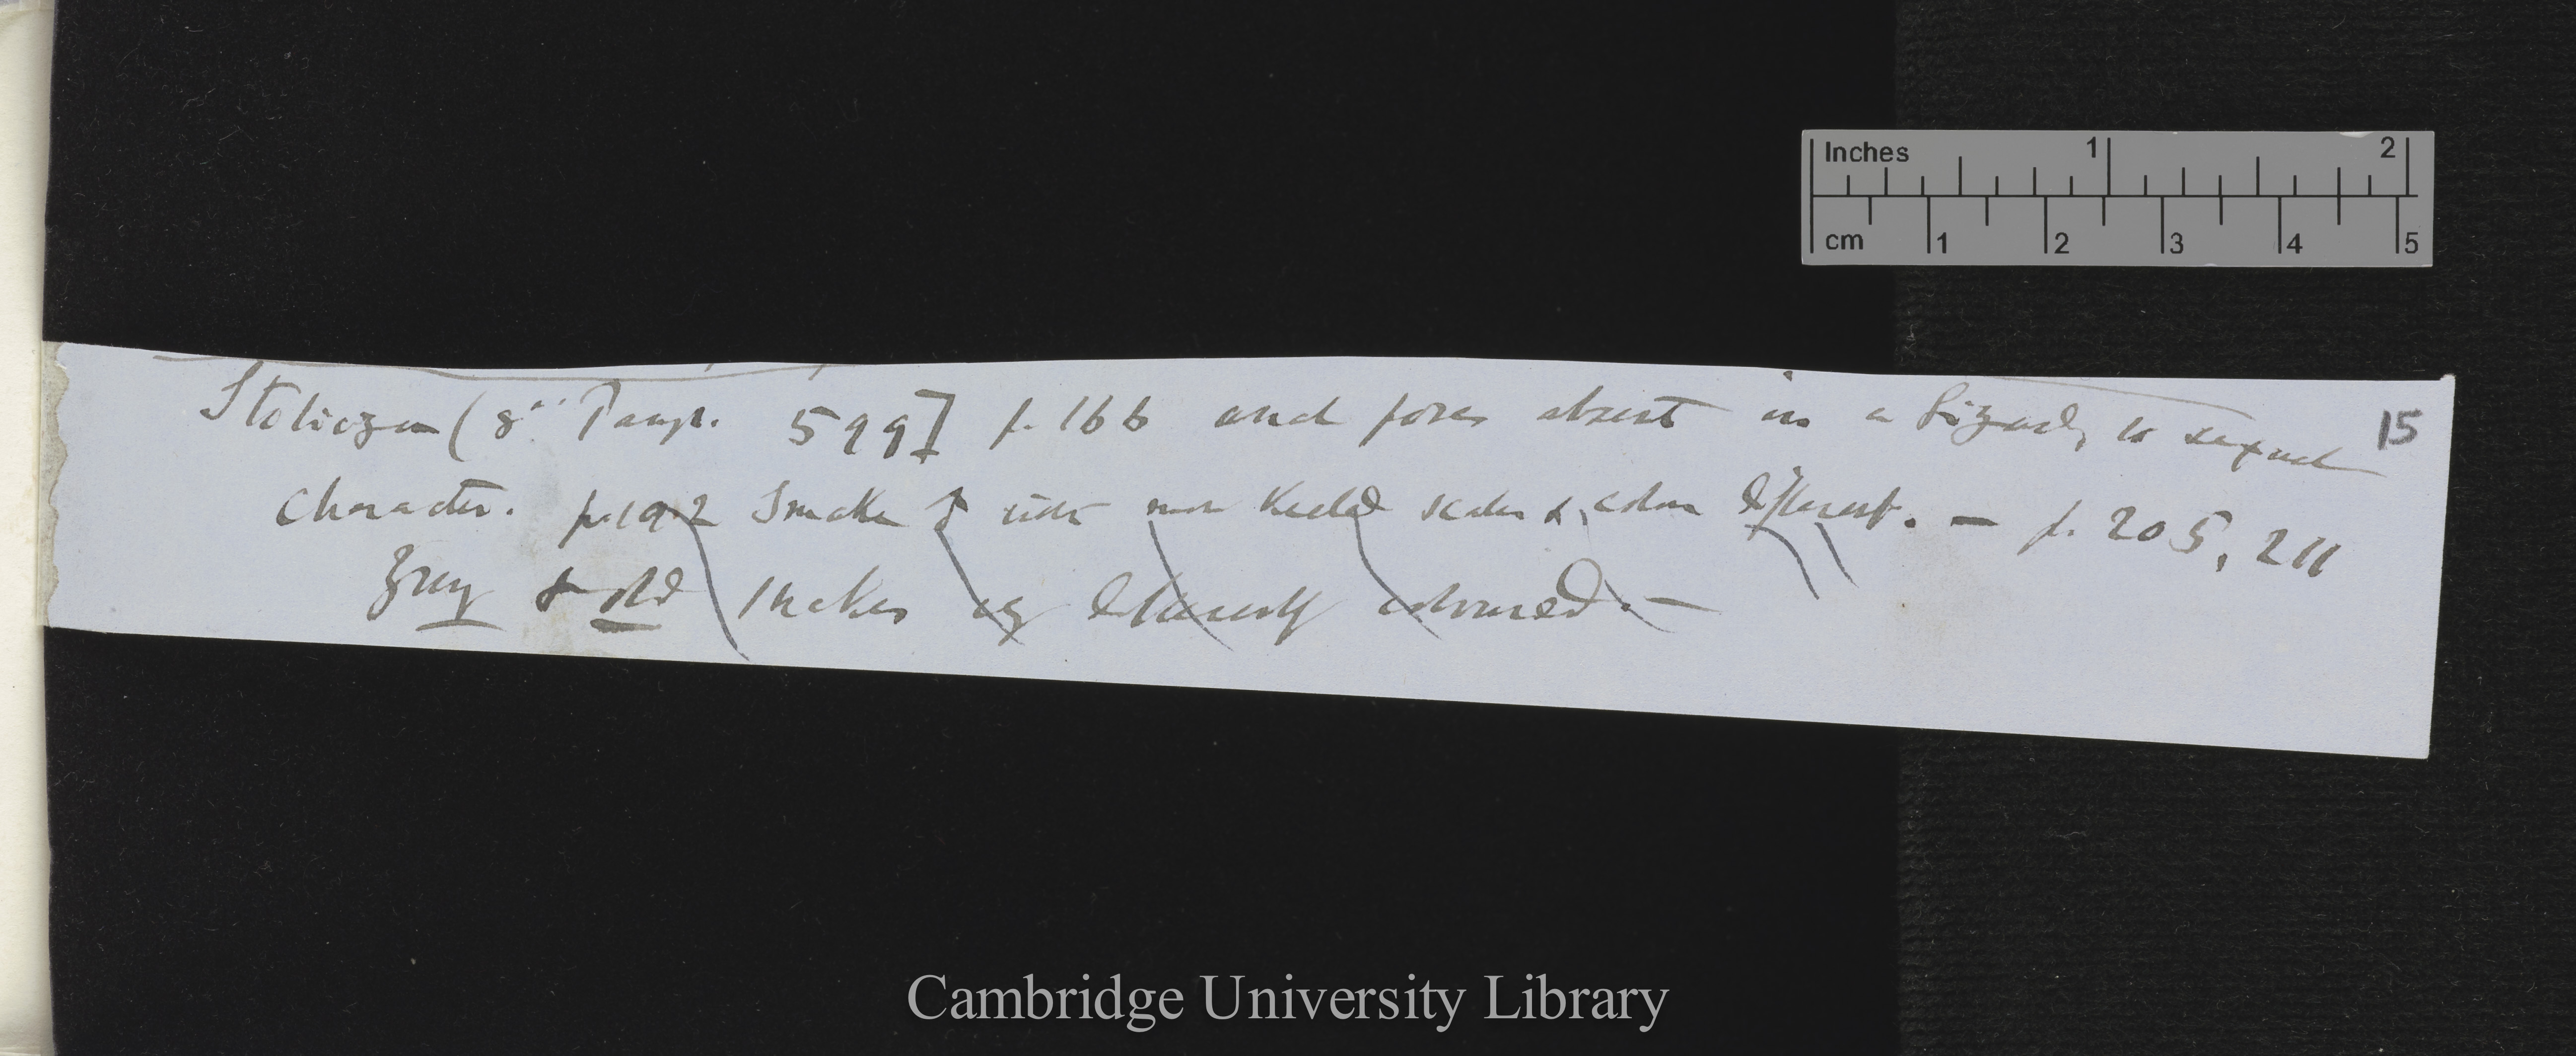 Inches 1 2
cm 1 2 3 4 5
15
Stoliczka (8vo Pamph. 599] p. 166 anal pores absent in a Lizard, as sexual
character. p. 192 Snake ♂ with more keeled scales & colour different. — p. 205, 211
young & old snakes differently coloured. —
Cambridge University Library